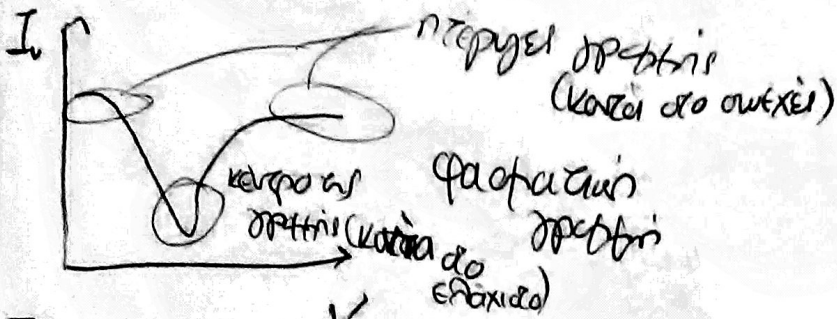 Iν
πτέρυγες γραμμής
(κοντά στο συνεχές)
κέντρο της
γραμμής (κοντά
στο
ελάχιστο)
φασματική
γραμμή